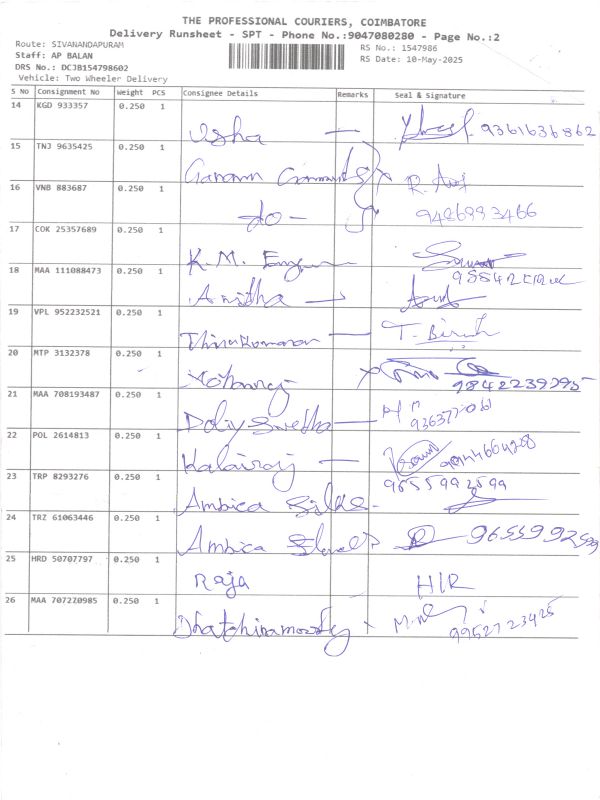 THE PROFESSIONAL COURIERS, COIMBATORE
Delivery Runsheet - SPT - Phone No.:9047080280 - Page No.:2
Route: SIVANANDAPURAM RS No.: 1547986
Staff: AP BALAN RS Date: 10-May-2025
DRS No.: DCJB154798602
Vehicle: Two Wheeler Delivery
S No Consignment No Weight PCS Consignee Details Remarks Seal & Signature
14 KGD 933357 0.250 1
Usha — 9361636862
15 TNJ 9635425 0.250 1
R.
16 VNB 883687 0.250 1
do -
17 COK 25357689 0.250 1
K.M.
18 MAA 111088473 0.250 1
Anitha
19 VPL 952232521 0.250 1
Thirukumaran — T.
20 MTP 3132378 0.250 1
21 MAA 708193487 0.250 1
22 POL 2614813 0.250 1
Kalairaj —
23 TRP 8293276 0.250 1 9655992599
Ambica Silks-
24 TRZ 61063446 0.250 1
Ambica 9655992599
25 HRD 50707797 0.250 1
Raja HIR
26 MAA 707270985 0.250 1
9952723425